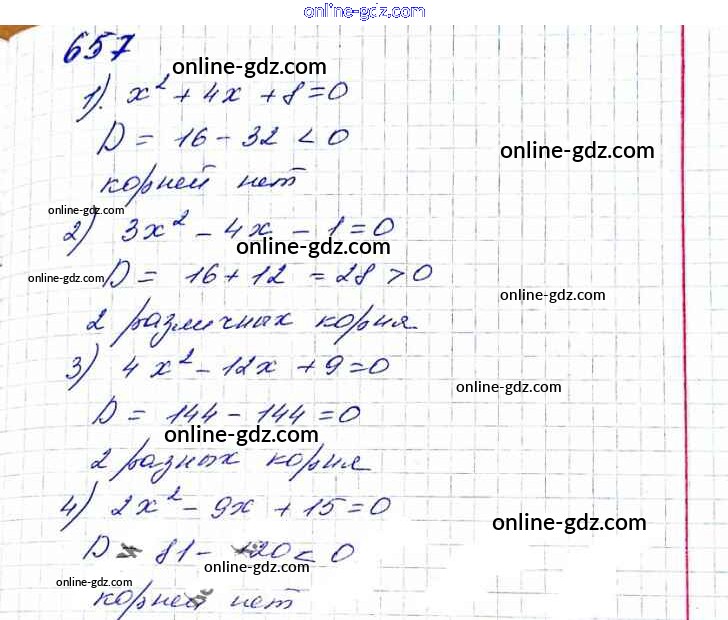 online-gdz.com
657
online-gdz.com
1). x² + 4x + 8 = 0
D = 16 - 32 < 0
online-gdz.com
корней нет
online-gdz.com
2) 3x² - 4x - 1 = 0
online-gdz.com
online-gdz.com D = 16 + 12 = 28 > 0
online-gdz.com
2 различных корня
3) 4x² - 12x + 9 = 0
online-gdz.com
D = 144 - 144 = 0
online-gdz.com
2 разных корня
4) 2x² - 9x + 15 = 0
online-gdz.com
D = 81 - 120 < 0
online-gdz.com
online-gdz.com
корней нет